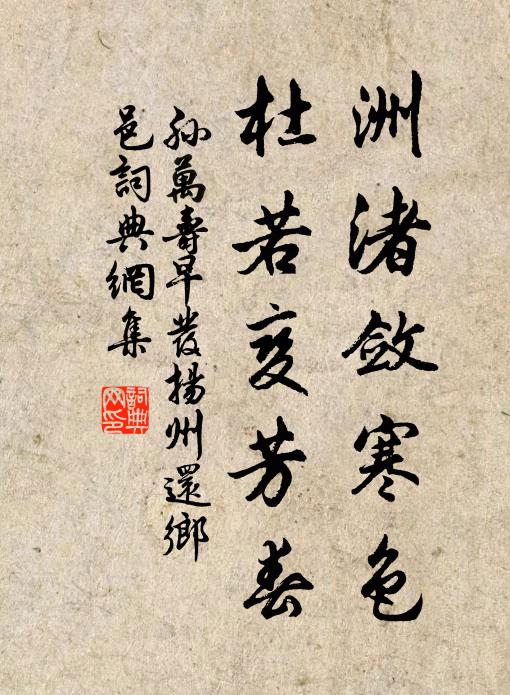 洲渚斂寒色
杜若变芳春
孙萬壽早發揚州還鄉
邑詞典網集
詞典
网印